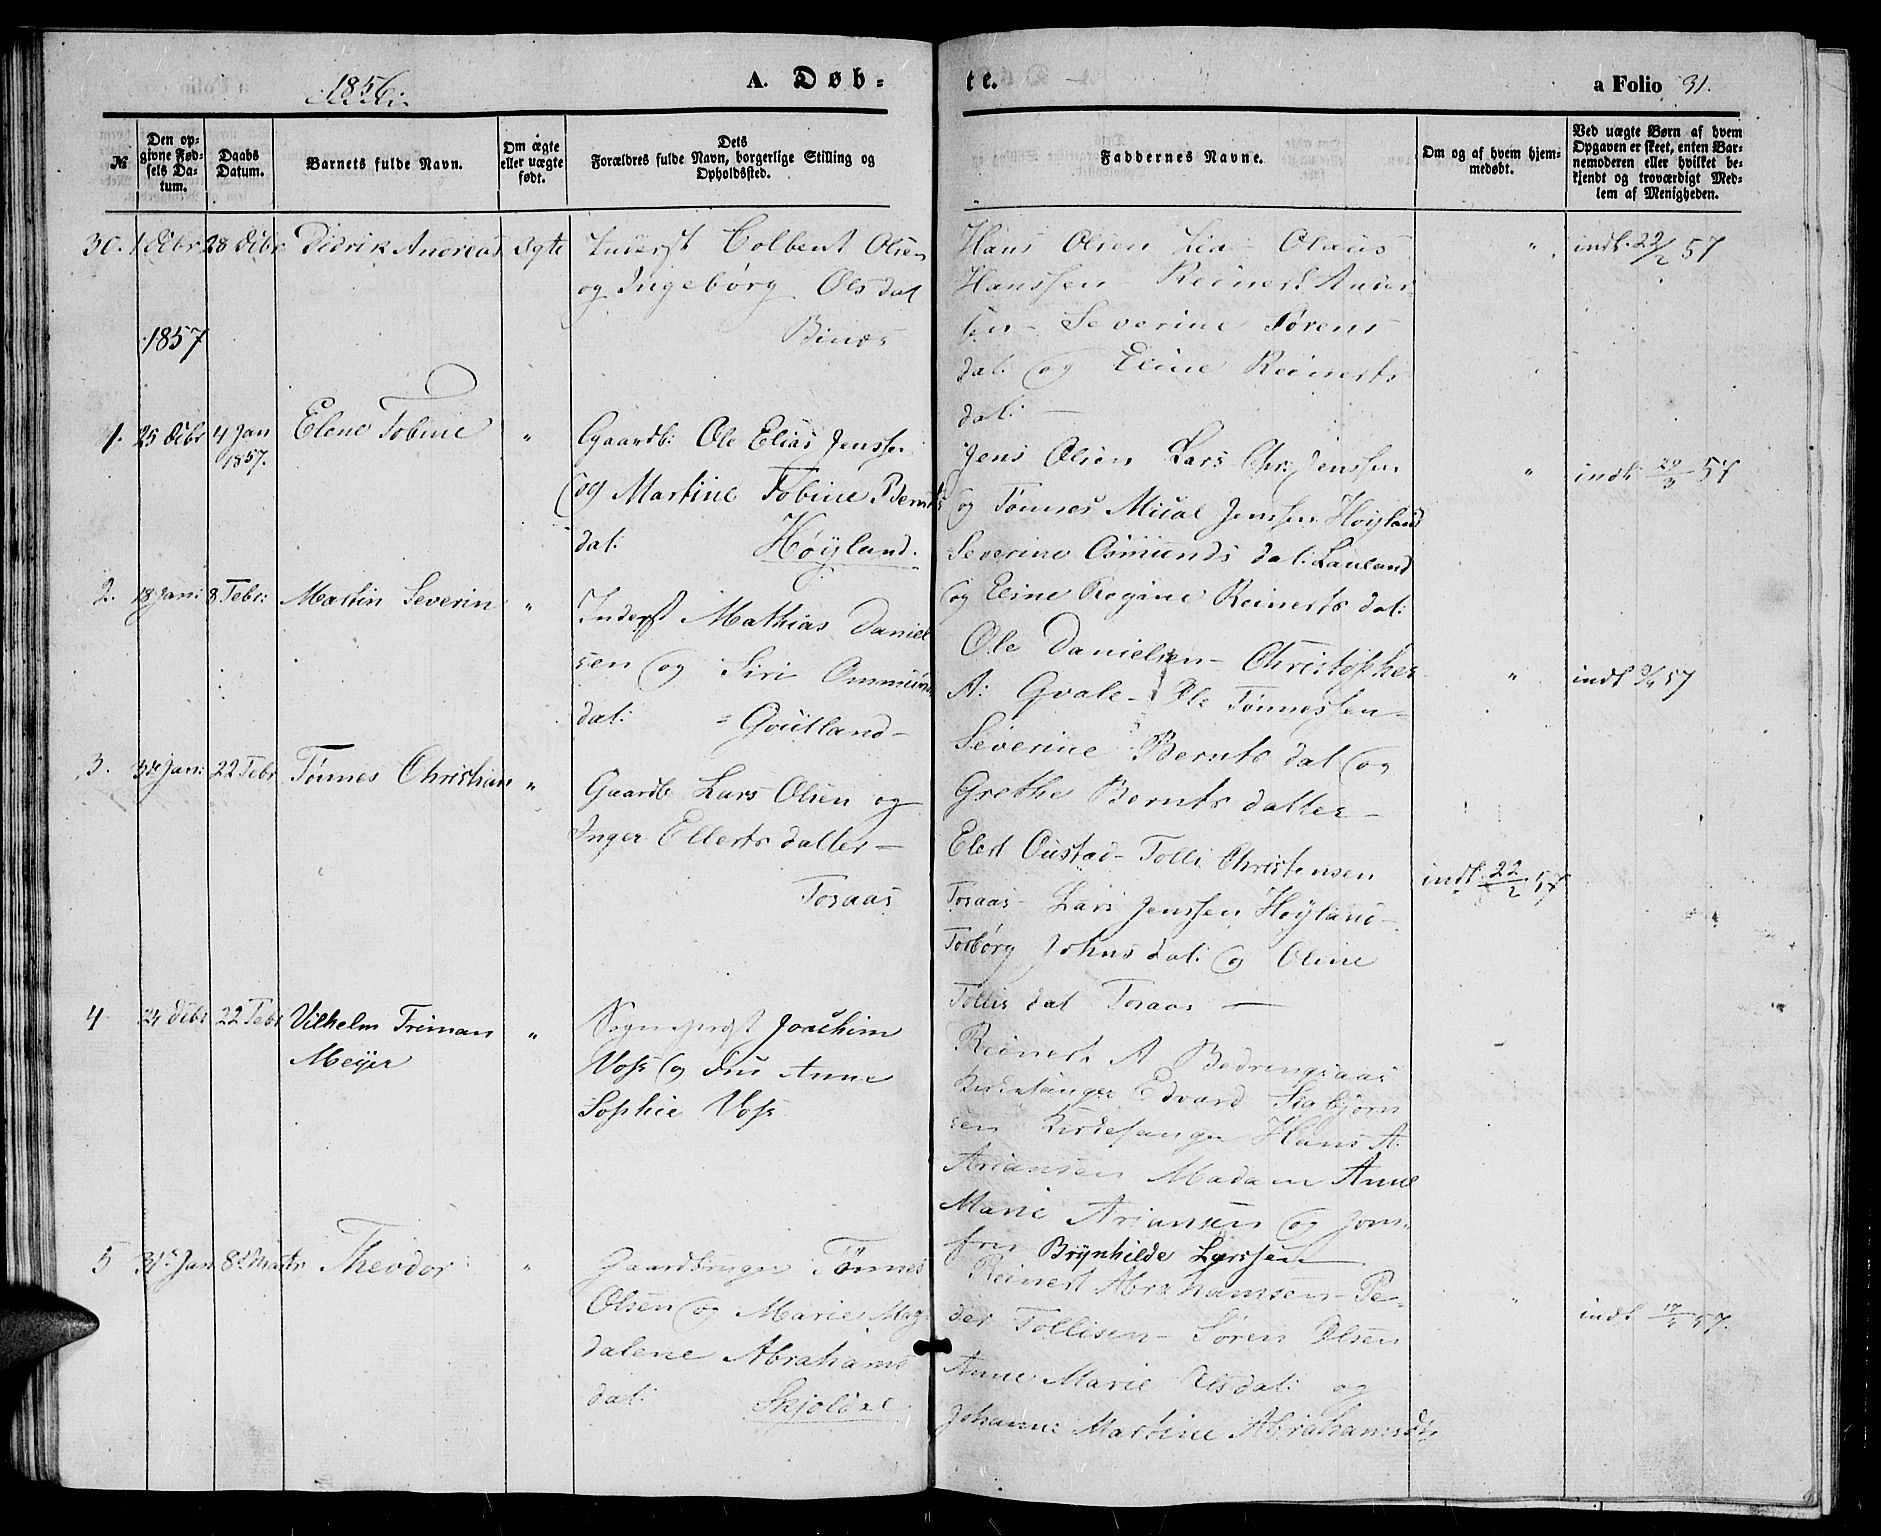 1856
A. Døb-
te.
a Folio 31.
№
Den op-
givne Fød-
sels Da-
tum.
Daabs
Datum.
Barnets fulde Navn.
Om ægte
eller uægte
født.
Dets
Forældres fulde Navn, borgerlige Stilling og
Opholdssted.
Faddernes Navne.
Om og af hvem hjem-
medøbt.
Ved uægte Børn af hvem
Opgaven er skeet, enten Bar-
nemoderen eller hvilket be-
kjendt og troværdigt Med-
lem af Menigheden.
30. 1 Decbr 28 Decbr Didrik Andreas Ægte
Inderst Colbent Olsen
og Ingebørg Olsdat
Hans Olsen Lia Olaus
Hanssen Reinert Ander-
sen - Severine Sørens
dat: og Eline Reinerts
dat: -
" indf. 22/2 57
1857
1. 25 Decbr 4 Jan
1857.
Elene Tobine "
Gaardb: Ole Elias Jenssen
og Martine Tobine Bernts
dat: Høyland.
Jens Olsen Lars Chr: Jenssen
og Tønnes Mical Jenssen Høyland
Severine Osmunds dat: Lauland
og Eline Regine Reinerts dat:
" indf 29/3 57
2. 18 Jan: 8 Febr: Martin Severin "
Inderst Mathias Daniel
sen og Siri Ommunds
dat: - Goutland -
Ole Danielsen - Christopher
A: Gvale - Ole Tønnessen -
Severine Bernts dat og
Grethe Bernts datter -
" indf 57
3. 31 Jan: 22 Febr Tønnes Christian "
Gaardb Lars Olsen og
Inger Ellerts datter -
Tosaas
Elert Oustad - Tolli Christensen
Tosaas - Lars Jenssen Høyland -
Torbørg Johns dat: og Oline
Tollis dat Tosaas -
indf. 22/2 57
4 24 Decbr 22 Febr Vilhelm Treman
Meyer
"
Sogneprest Joachim
Voss og Fru Anne
Sophie Voss
Reinert A Bedringsaas
Kirkesanger Edvard Sigbjørn
sen Kirkesanger Hans A.
Ariansen Madam Anne
Marie Ariansen og Jom-
fru Brynhilde Larssen
5 31te Jan 8de Marts Theodor "
Gaardbruger Tönnes
Olsen og Marie Mag-
dalene Abrahams
dat: Skjoldal
Reinert Abrahamsen - Pe-
der Tollisen - Søren Olsen
Anne Marie Olsdat: og
Johanne Martine Abrahamsdt
" indf 57.